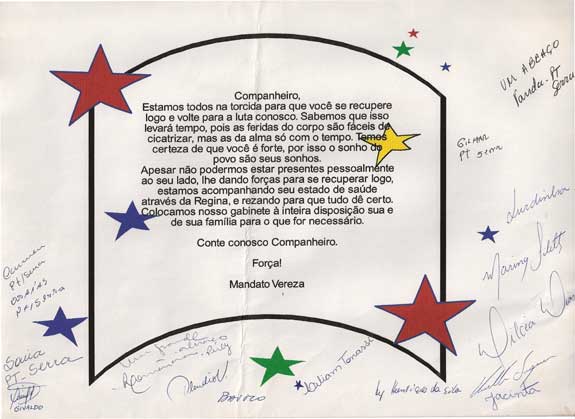 Companheiro,
Estamos todos na torcida para que você se recupere
logo e volte para a luta conosco. Sabemos que isso
levará tempo, pois as feridas do corpo são fáceis de
cicatrizar, mas as da alma só com o tempo. Temos
certeza de que você é forte, por isso o sonho do
povo são seus sonhos.
Apesar não podermos estar presentes pessoalmente
ao seu lado, lhe dando forças para se recuperar logo,
estamos acompanhando seu estado de saúde
através da Regina, e rezando para que tudo dê certo.
Colocamos nosso gabinete à inteira disposição sua e
de sua família para o que for necessário.
Conte conosco Companheiro.
Força!
Mandato Vereza
UM ABRAÇO
PT
Serra
GILMAR
PT Serra
Lurdinha
PT/Serra
PT/Serra
PT-Serra
GIVALDO
Um grande
abraço
Jacinta